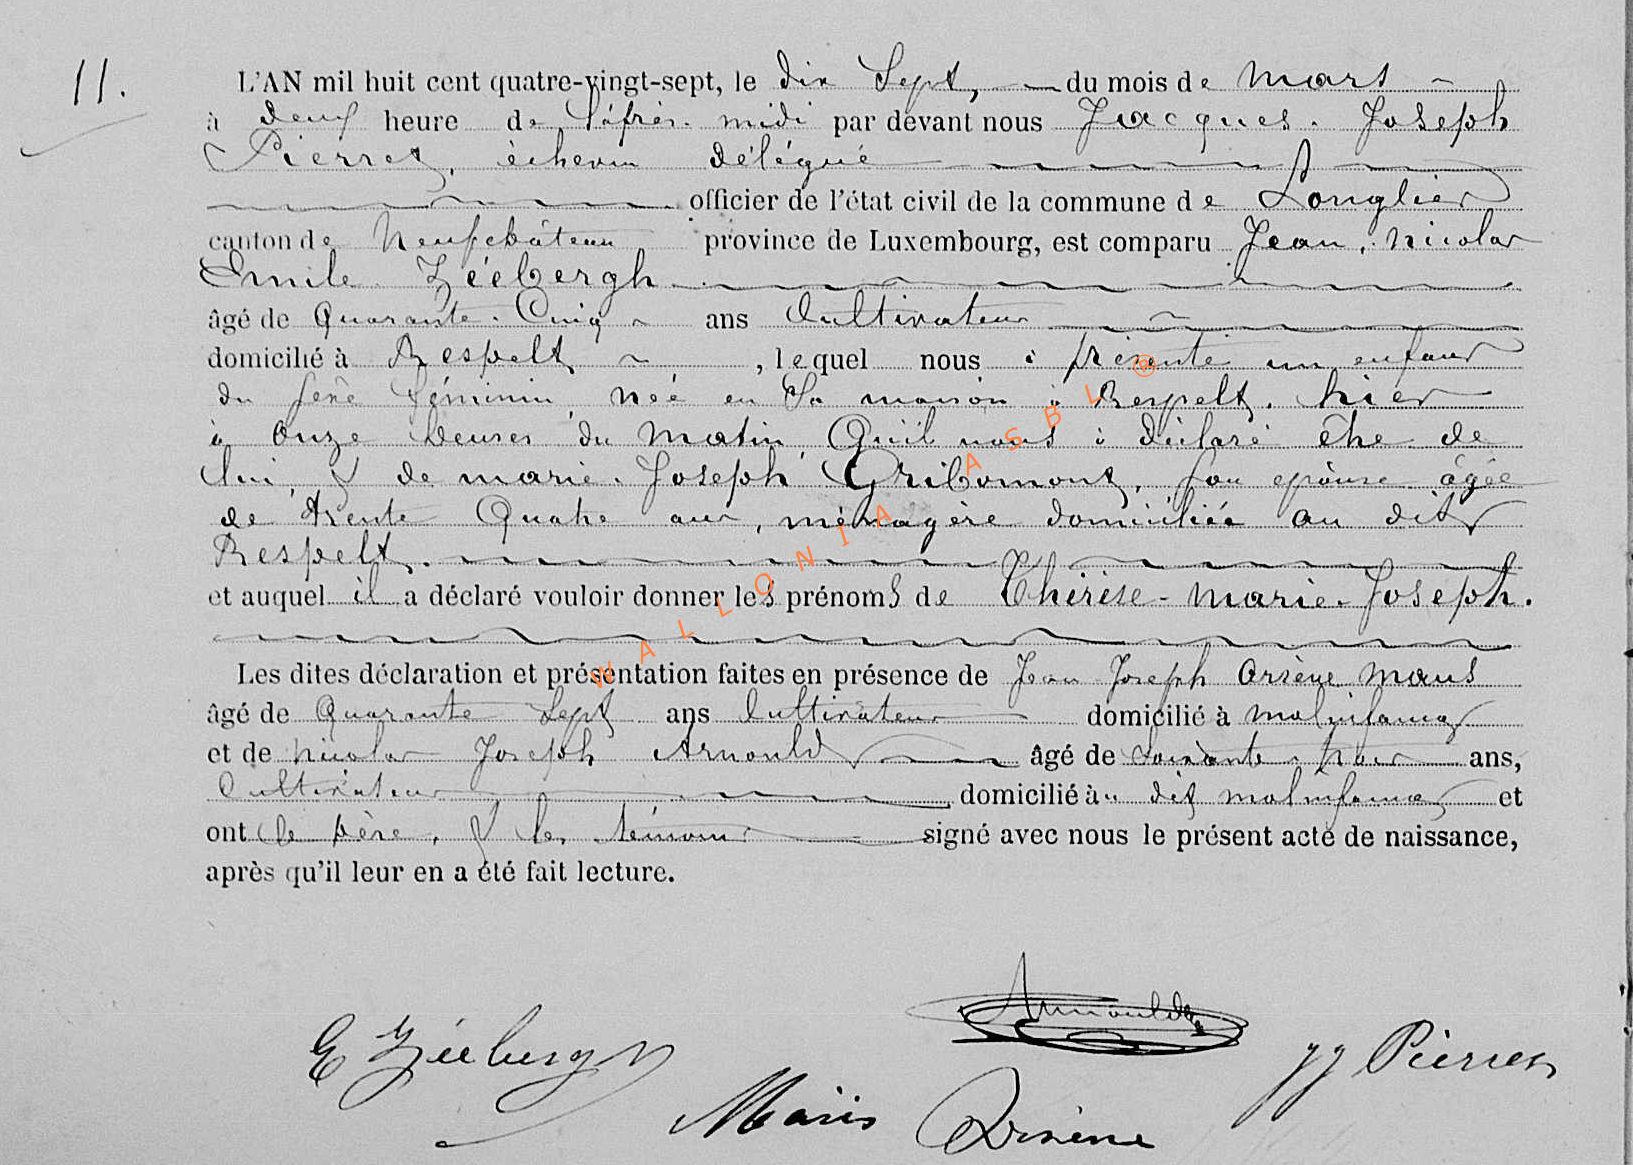 11.
L'AN mil huit cent quatre-vingt-sept, le dix Sept, du mois de mars
à deux heure de l'après-midi par devant nous Jacques-Joseph
Pierret, échevin délégué
officier de l'état civil de la commune de Longlier
canton de Neufchâteau province de Luxembourg, est comparu Jean, Nicolas
Emile Zéebergh
âgé de Quarante-Cinq ans Cultivateur
domicilié à Respelt, lequel nous à présenté un enfant
du sexe féminin, née en Sa maison à Respelt, hier
à onze heures du matin, Qu'il nous à déclaré être de
lui, & de marie-Joseph Gribomont, son épouse âgée
de trente Quatre ans, ménagère domiciliée au dit
Respelt.
et auquel il a déclaré vouloir donner les prénomS de Thérèse-Marie-Joseph.
Les dites déclaration et présentation faites en présence de Jean Joseph Arsène Maus
âgé de Quarante Sept ans Cultivateur domicilié à Molinfaing
et de Nicolas Joseph Arnould âgé de Soixante-trois ans,
Cultivateur domicilié au dit Molinfaing et
ont le père, & les témoins signé avec nous le présent acte de naissance,
après qu'il leur en a été fait lecture.
Arnould
E Zéebergh
JJ Pierret
Arsène
WALLONIA ASBL @